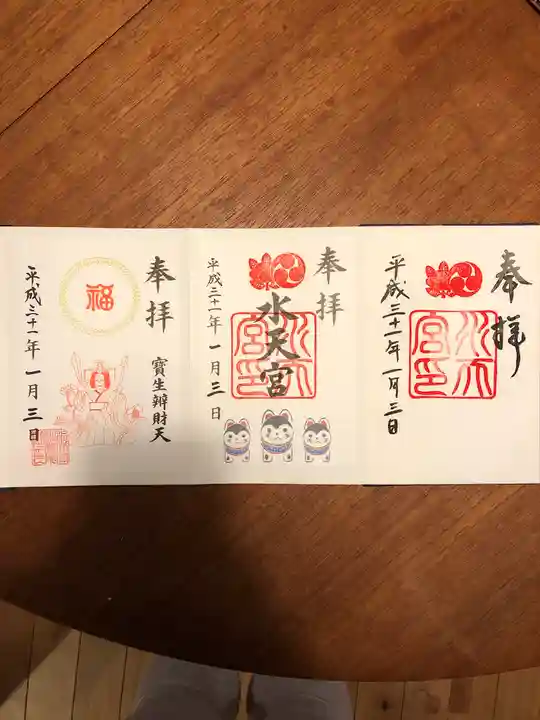 奉拝
水天宮印
平成三十一年一月三日
奉拝
水天宮
水天宮印
平成三十一年一月三日
奉拝
寶生辨財天
福
平成三十一年一月三日